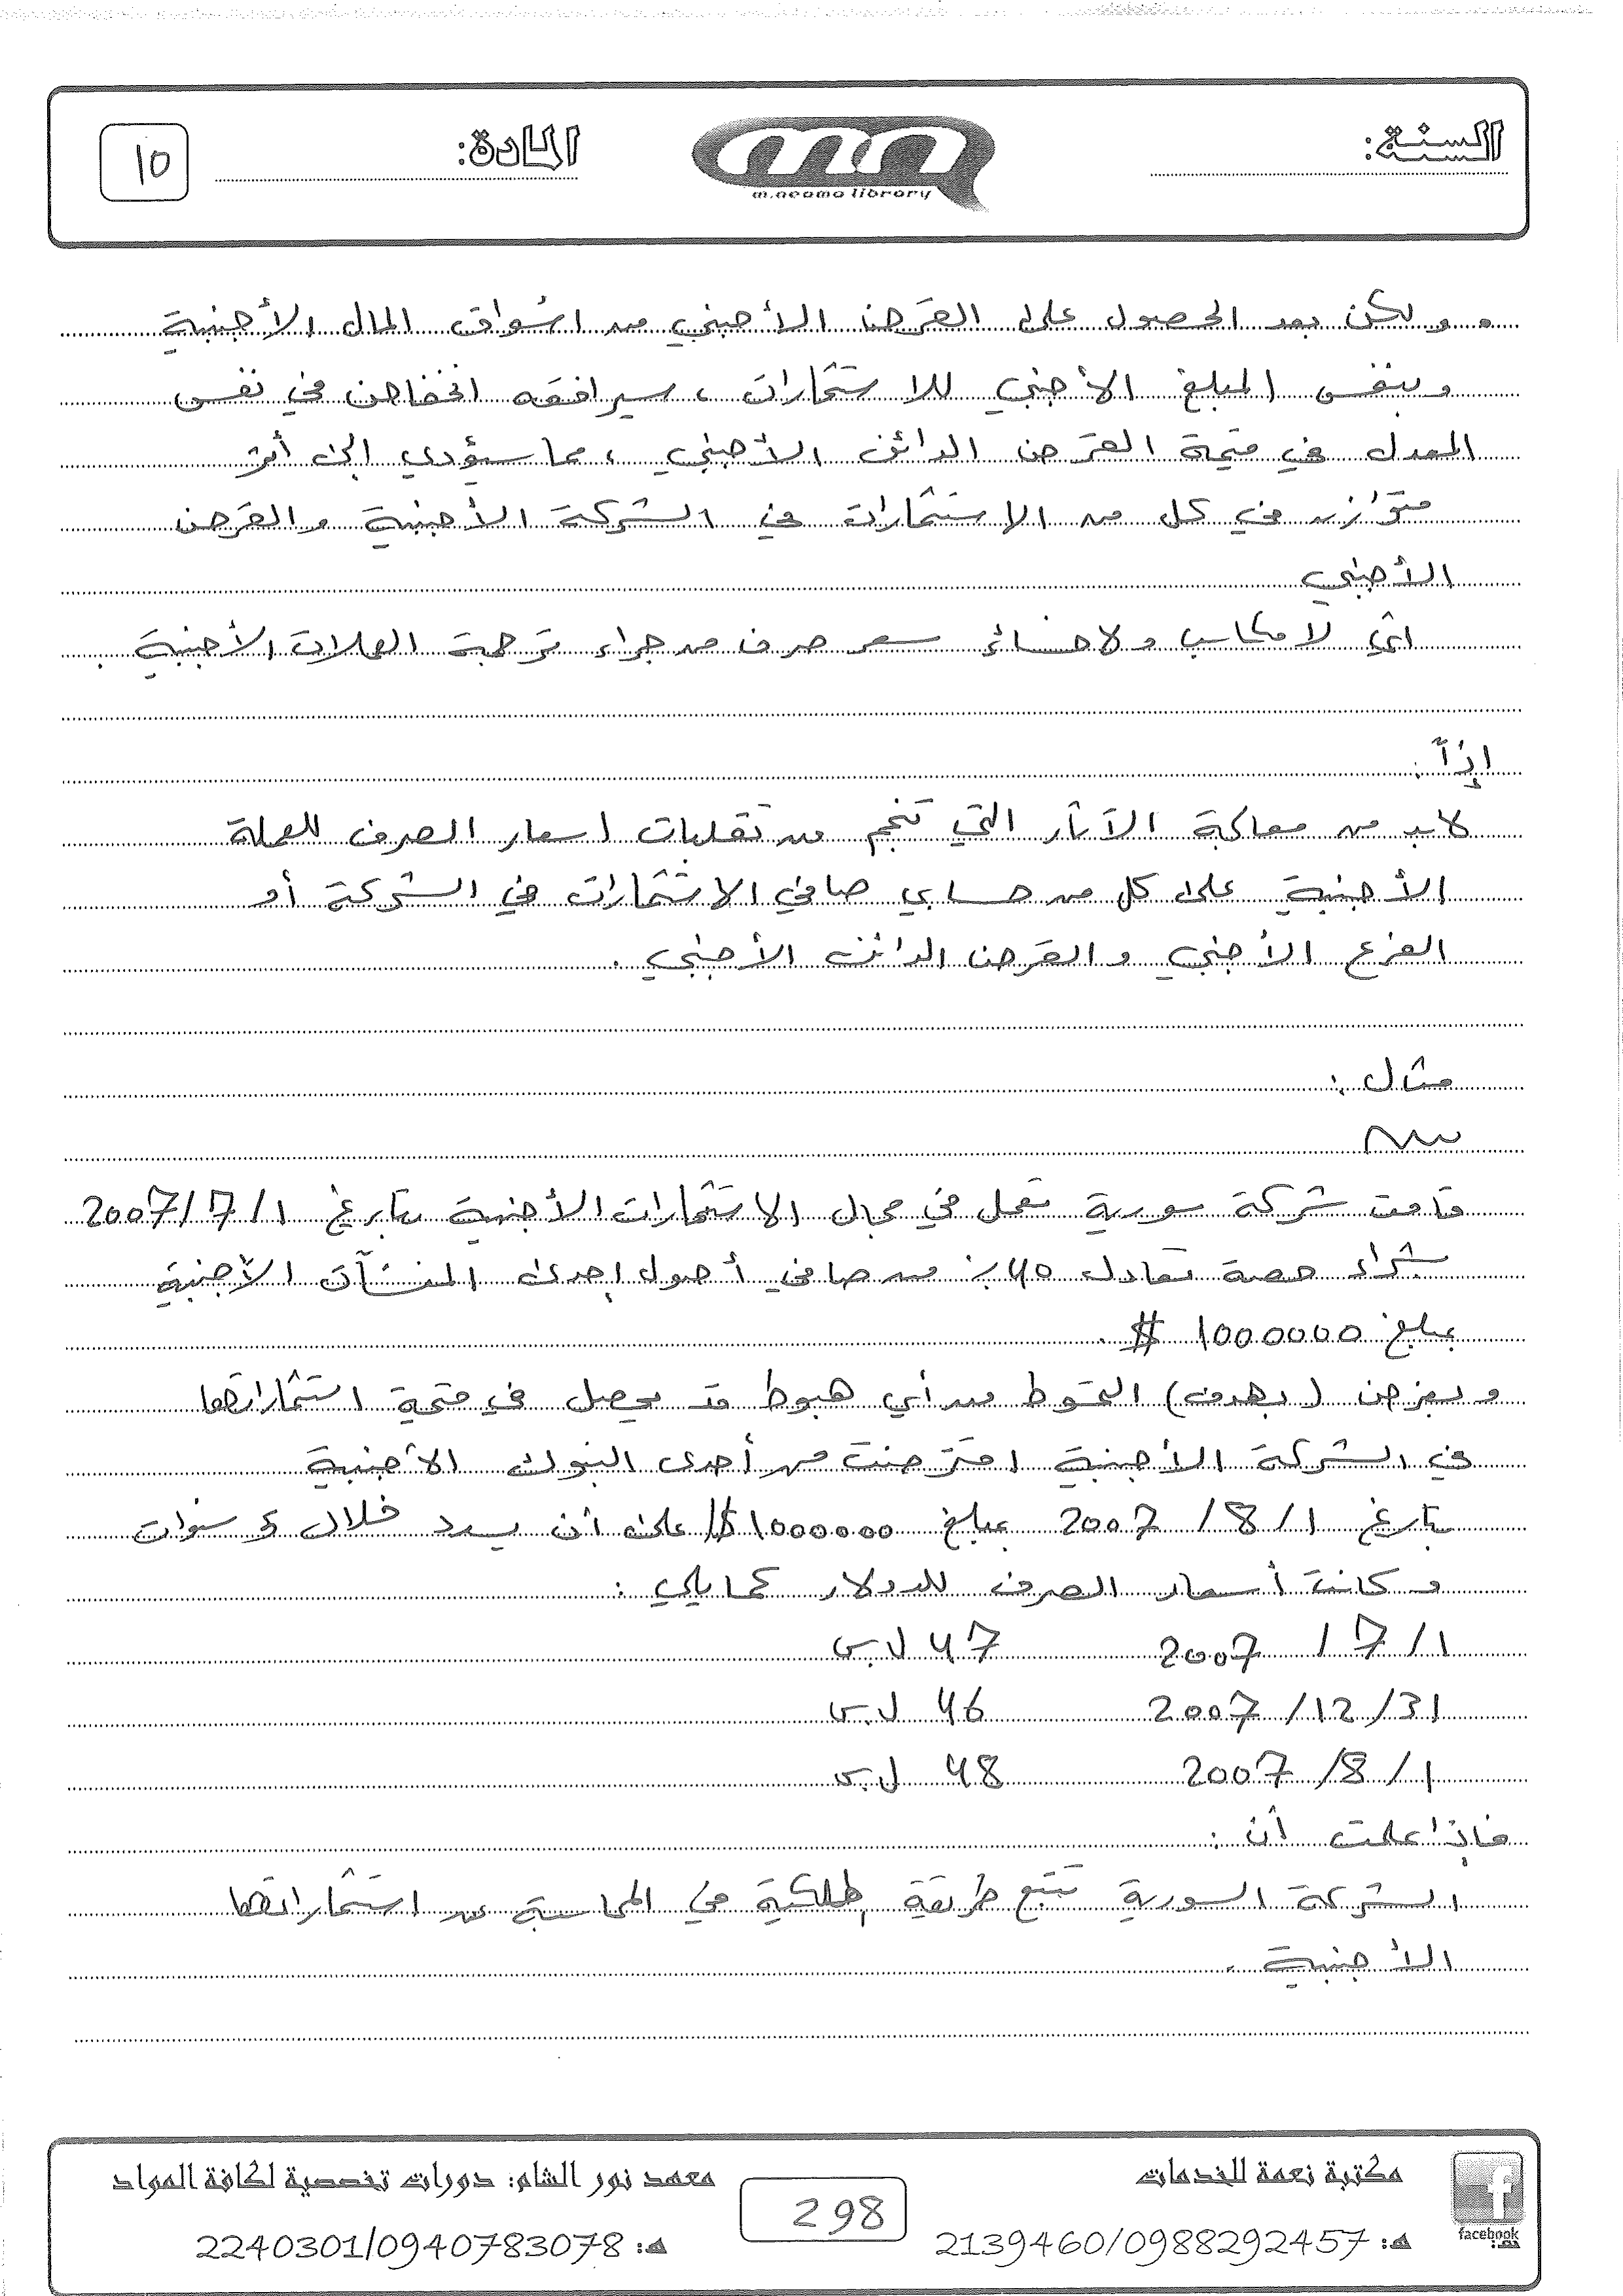 السنة:
m.neama library
المادة:
10
. ولكن بعد الحصول على القرض الأجنبي من اسواق المال الأجنبية
وبنفس المبلغ الأجنبي للاستثمارات ، سيرافقه انخفاض في نفس
المعدل في قيمة القرض الدائن الأجنبي ، مما سيؤدي الى أثر
متوازن في كل من الاستثمارات في الشركة الأجنبية والقرض
الأجنبي
اي لا مكاسب ولا خسائر سعر صرف من جراء ترجمة العملات الأجنبية .
إذاً :
لابد من معالجة الآثار التي تنجم من تقلبات اسعار الصرف للعملة
الأجنبية على كل من حسابي صافي الاستثمارات في الشركة أو
الفرع الأجنبي والقرض الدائن الأجنبي .
مثال :
قامت شركة سورية تعمل في مجال الاستثمارات الأجنبية بتاريخ 2007/7/1
بشراء حصة تعادل 40% من صافي أصول إحدى المنشآت الأجنبية
بمبلغ 1000000 $ .
وبغرض (بهدف) التحوط من أي هبوط قد يحصل في قيمة استثماراتها
في الشركة الأجنبية اقترضت من أحدى البنوك الأجنبية
بتاريخ 2007/8/1 بمبلغ 1000000 $ على أن يسدد خلال 5 سنوات
وكانت أسعار الصرف للدولار كما يلي :
2007/7/1 47 ل.س
2007/12/31 46 ل.س
2007/8/1 48 ل.س
فإذا علمت أن :
الشركة السورية تتبع طريقة الملكية في المحاسبة عن استثماراتها
الأجنبية .
مكتبة نعمة للخدمات
معهد نور الشام: دورات تخصصية لكافة المواد
298
هـ: 2139460/0988292457
هـ: 2240301/0940783078
facebook